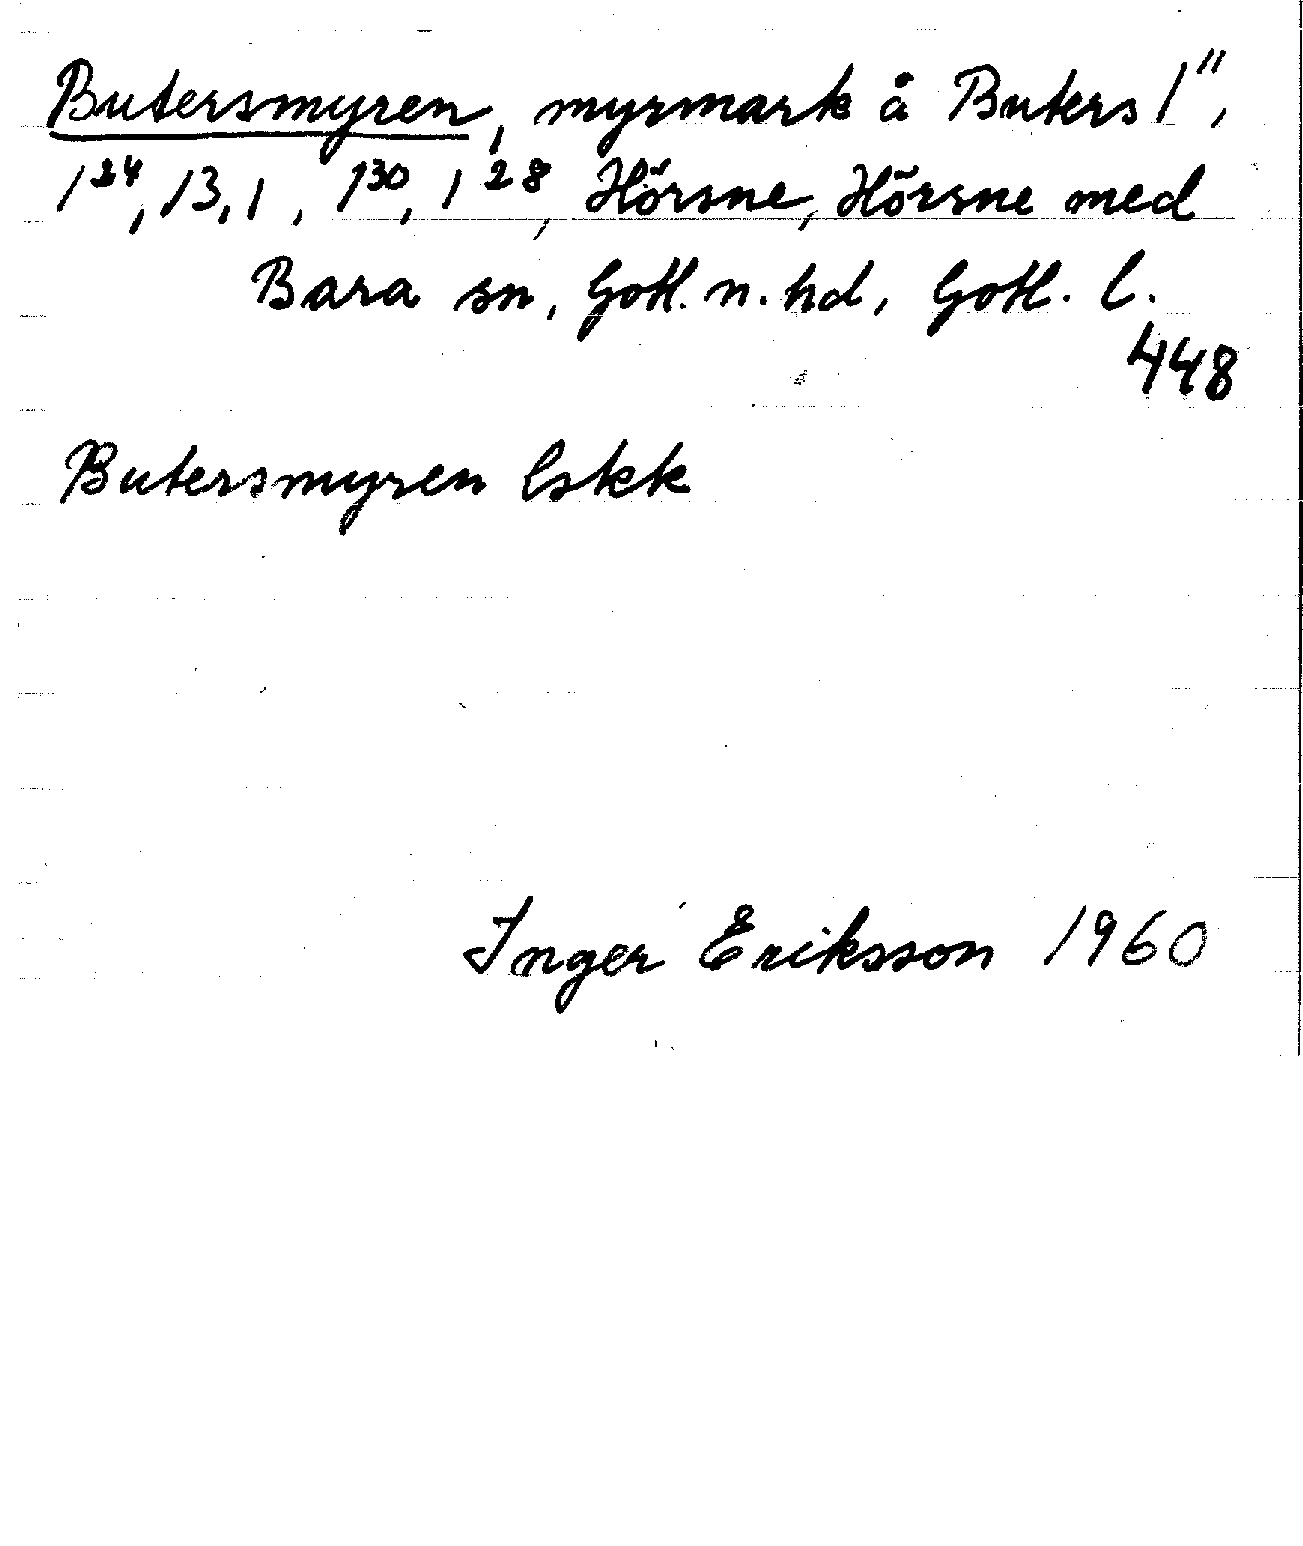 Butersmyren, myrmark å Buters 1¹¹,
1²⁴, 13,1, 1³⁰, 1²⁸, Hörsne, Hörsne med
Bara sn, Gotl. n. hd, Gotl. l.
448
Butersmyren lskk
Inger Eriksson 1960